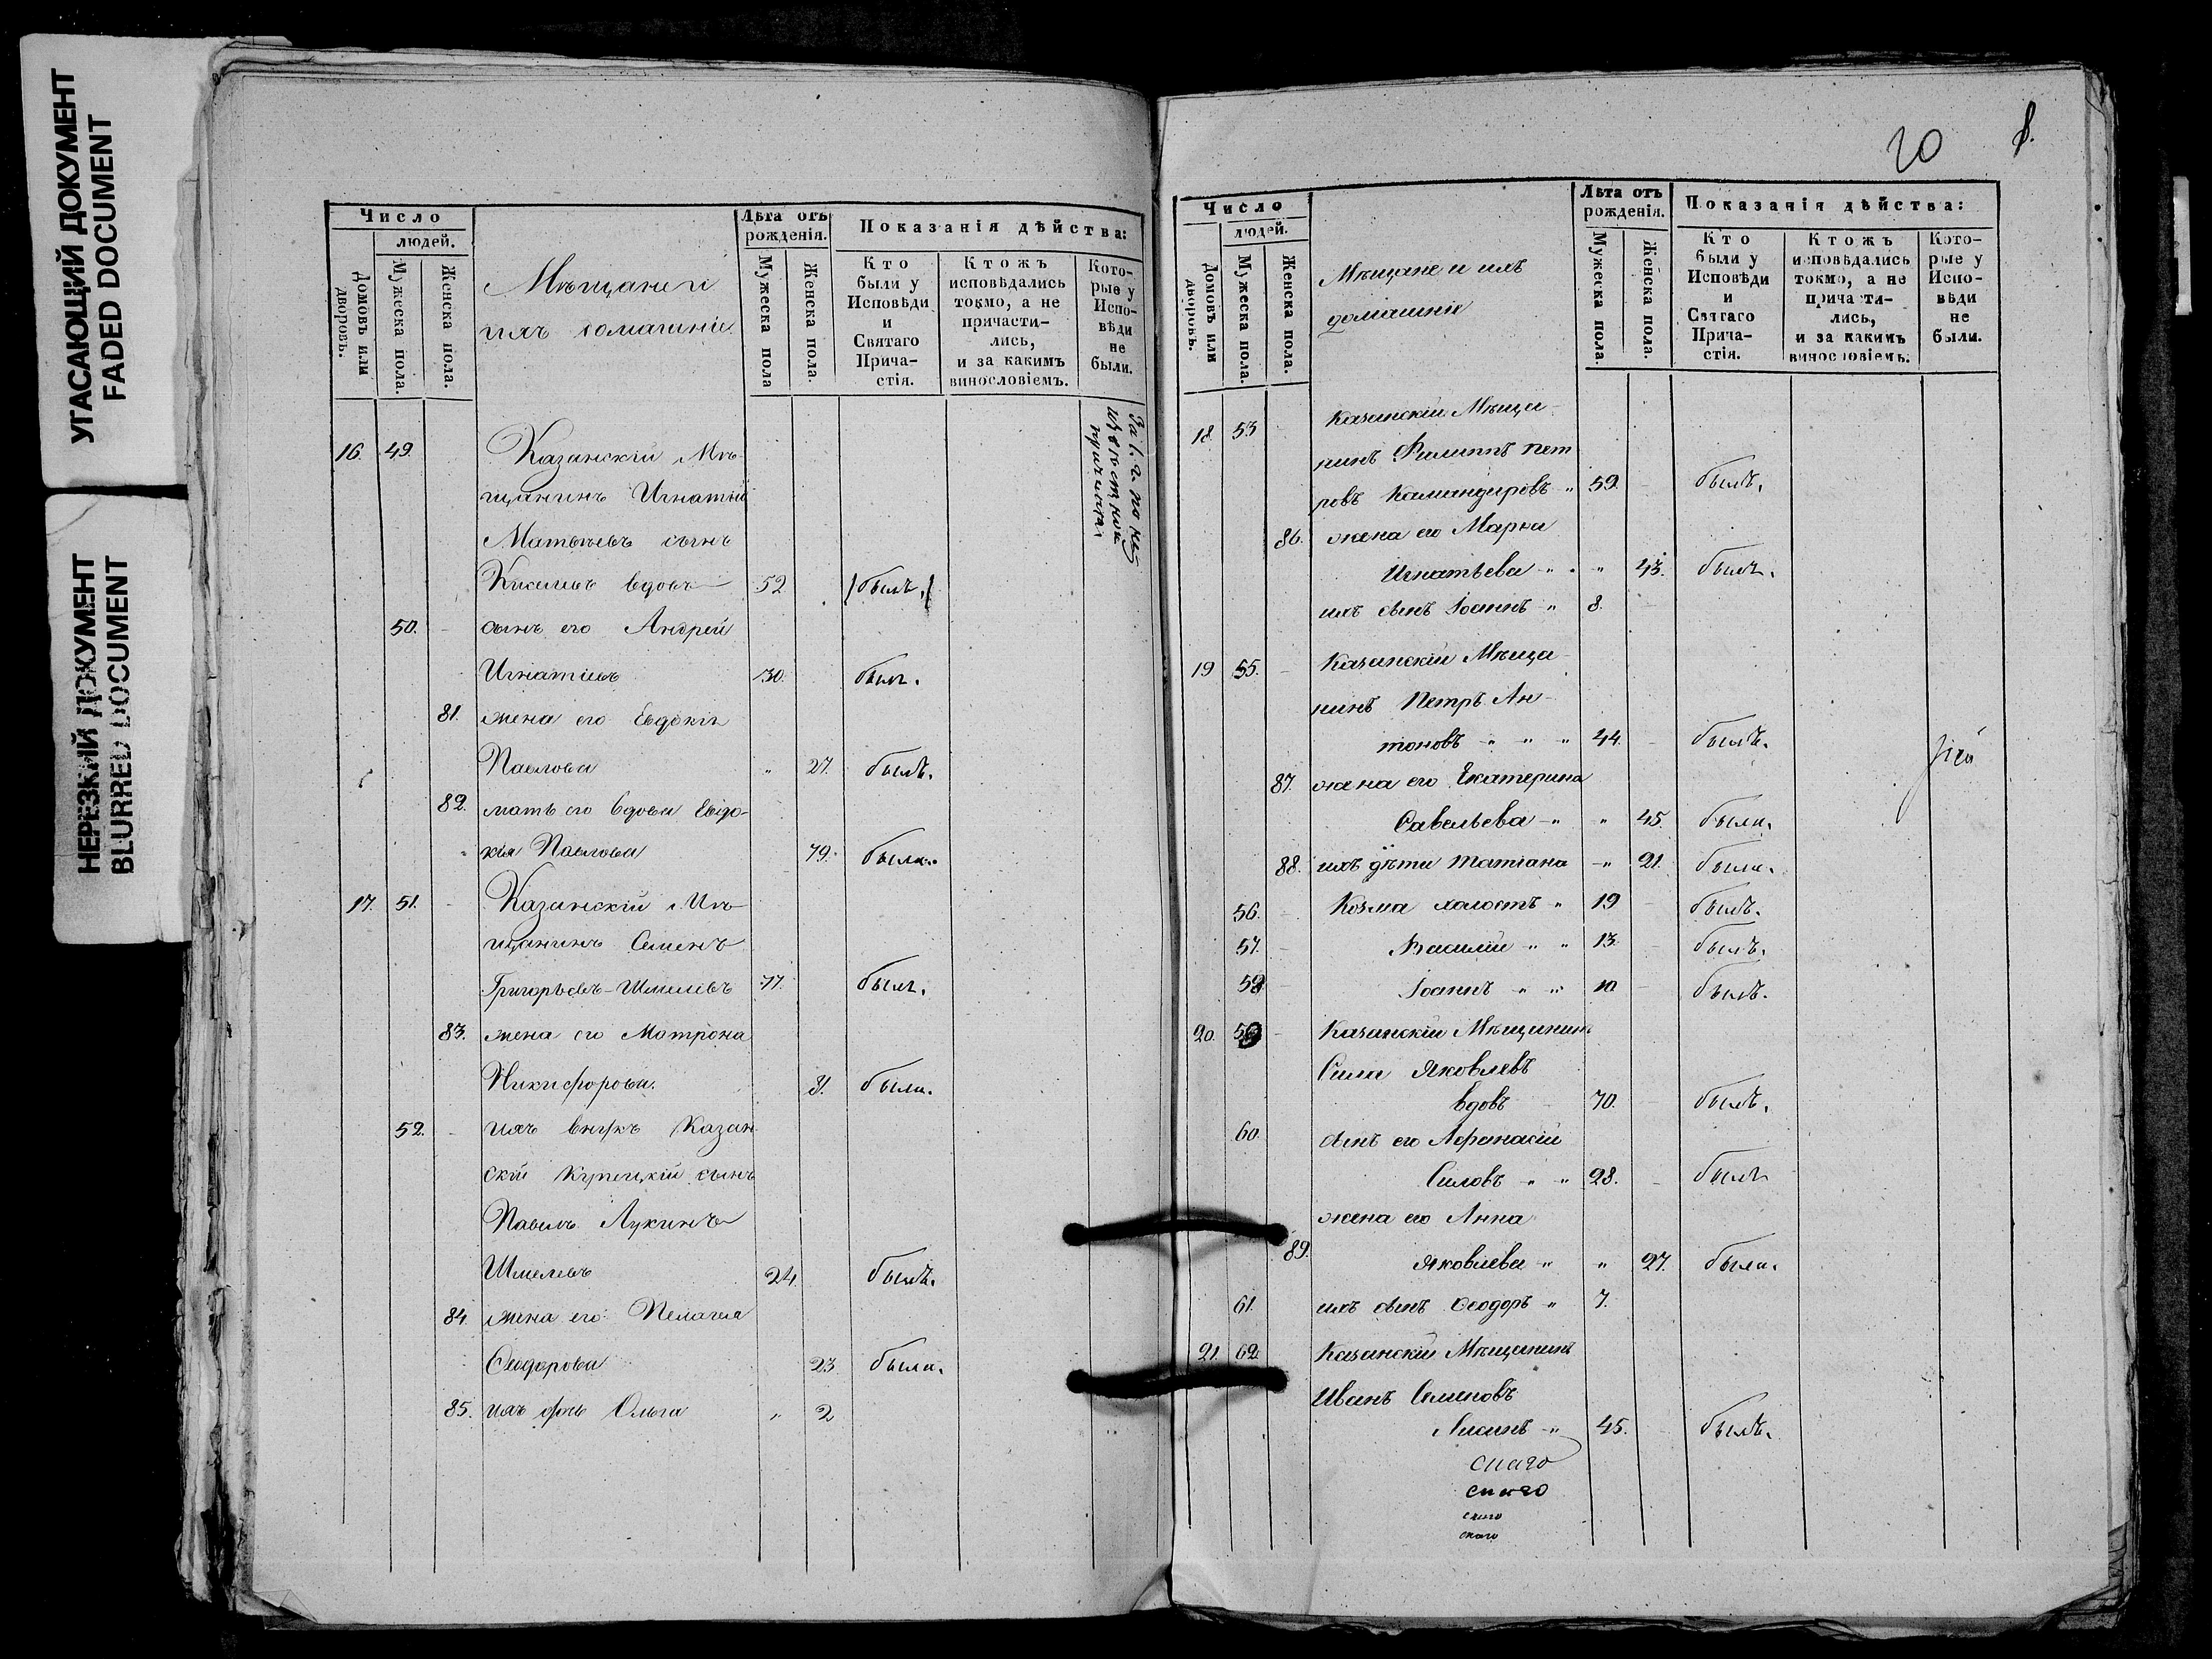 УГАСАЮЩИЙ ДОКУМЕНТ
FADED DOCUMENT
НЕРЕЗКИЙ ДОКУМЕНТ
BLURRED DOCUMENT
Число
людей.
Домовъ или дворовъ.
Мужеска пола.
Женска пола.
Мѣщане и
ихъ домашніе.
Лѣта отъ рожденія.
Мужеска пола
Женска пола.
Показанія дѣйства:
Кто были у Исповѣди и Святаго Прича-стія.
Ктожъ исповѣдались токмо, а не причасти-лись, и за какимъ винословіемъ.
Кото-рые у Испо-вѣди не были.
16. 49. Казанскій Мѣ-
щанинъ Игнатій
Матвѣевъ сынъ
вдовъ 52 былъ.
50. сынъ его Андрей
Игнатіевъ 30. былъ.
81. жена его Евдокія
Павлова " 27. былъ.
82. мать его вдова Евдо-
кія Павлова 79. была.
17. 51. Казанскій Мѣ-
щанинъ Семенъ
Григорьевъ-Шмелевъ 77. былъ.
83. жена его Мотрона
Никифорова. была.
52. ихъ внукъ Казан
скій Купецкій сынъ
Павелъ Лукинъ
Шмелевъ 24 былъ.
84. жена его Пелагея
Ѳеодорова 23 была.
85. ихъ дочь Ольга " 2
20
Число
людей.
Домовъ или дворовъ.
Мужеска пола.
Женска пола.
Мѣщане и ихъ
домашніе
Лѣта отъ рожденія.
Мужеска пола.
Женска пола.
Показанія дѣйства:
Кто были у Исповѣди и Святаго Прича-стія.
Ктожъ исповѣдались токмо, а не причасти-лись, и за какимъ винословіемъ.
Кото-рые у Испо-вѣди не были.
18 53 Казанскій Мѣща
нинъ Филиппъ Пет
ровъ Камандировъ " 59. былъ.
86. жена его Марѳа
Игнатьева " " " 43. былъ.
ихъ сынъ Іоаннъ " 8.
19 55. Казанскій Мѣща
нинъ Петръ Ан-
тоновъ " " " 44. былъ.
87. жена его Екатерина
Савельева " " 45. была.
88. ихъ дѣти Татіана " 21. была.
56. Козма холостъ " 19 былъ.
57. Василій " " 13. былъ.
58 Іоаннъ " " 10 былъ.
20. 59 Казанскій Мѣщанинъ
Сила Яковлевъ
вдовъ 70. былъ.
60. сынъ его Аѳанасій
Силовъ " " 28. былъ
жена его Анна
89. Яковлева " " 27. была.
61. ихъ сынъ Ѳеодоръ " 7.
21. 62 Казанскій Мѣщанинъ
Иванъ Семеновъ
45. былъ.